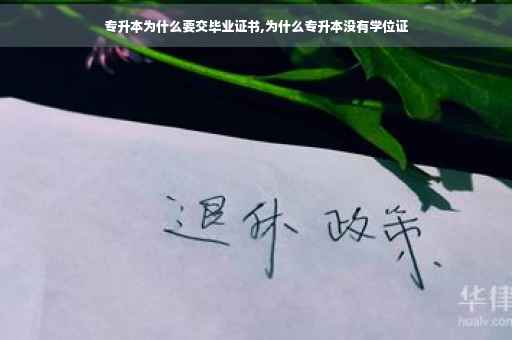 专升本为什么要交毕业证书,为什么专升本没有学位证
退休 政策
华律
hualv.com